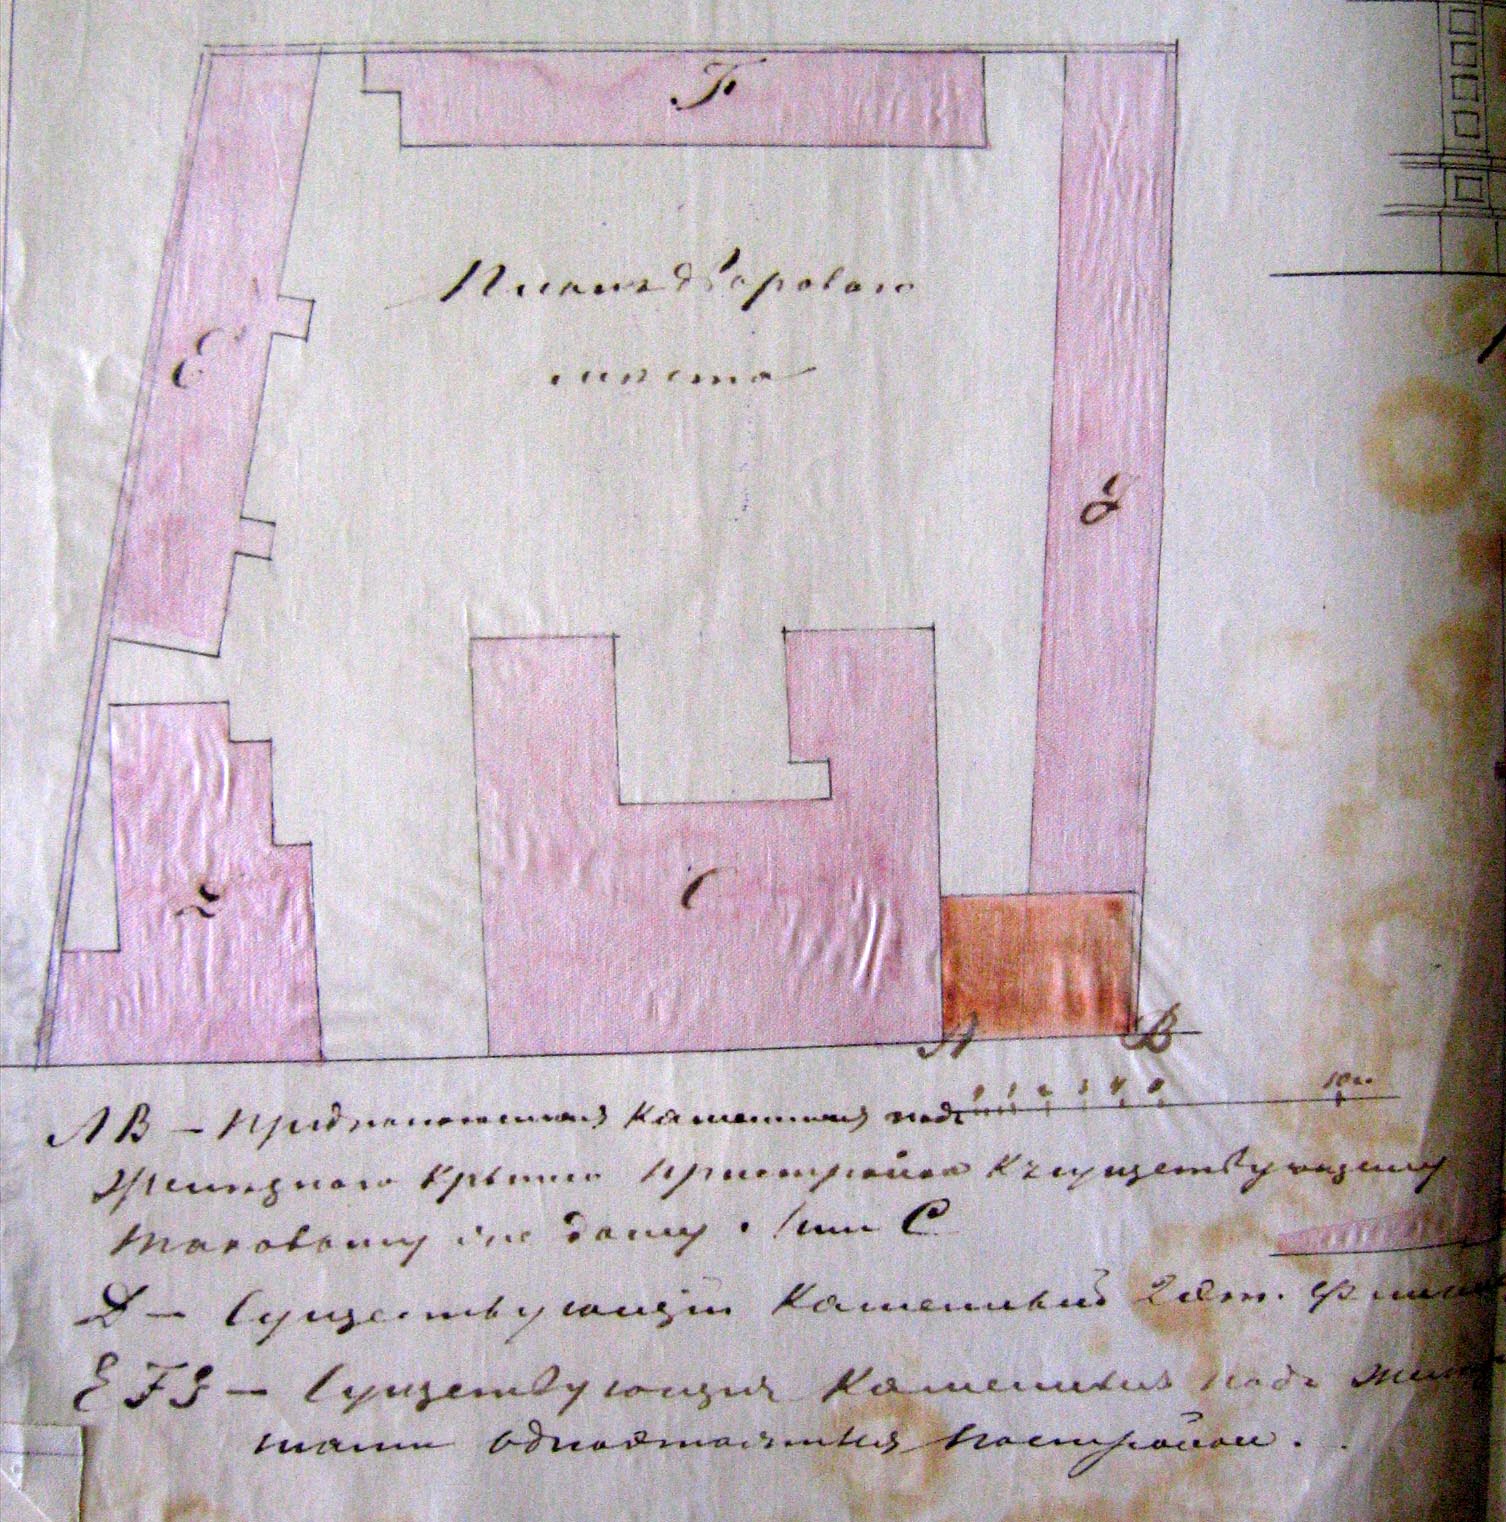 F
Планъ дворового
мѣста
E
G
C
D
A B
1 2 3 4 5 10 с.
AB — предполагаемая каменная подъ
желѣзною крышею пристройка къ существующему
таковому же дому лит. C
D — Существующій каменный 2 эт.
EFG — Существующія каменныя подъ
одноэтажныя постройки.